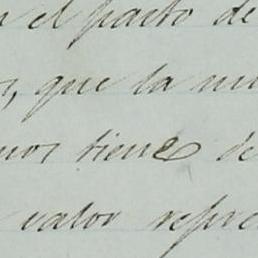 el pacto de
que la
tiene de
valor repre